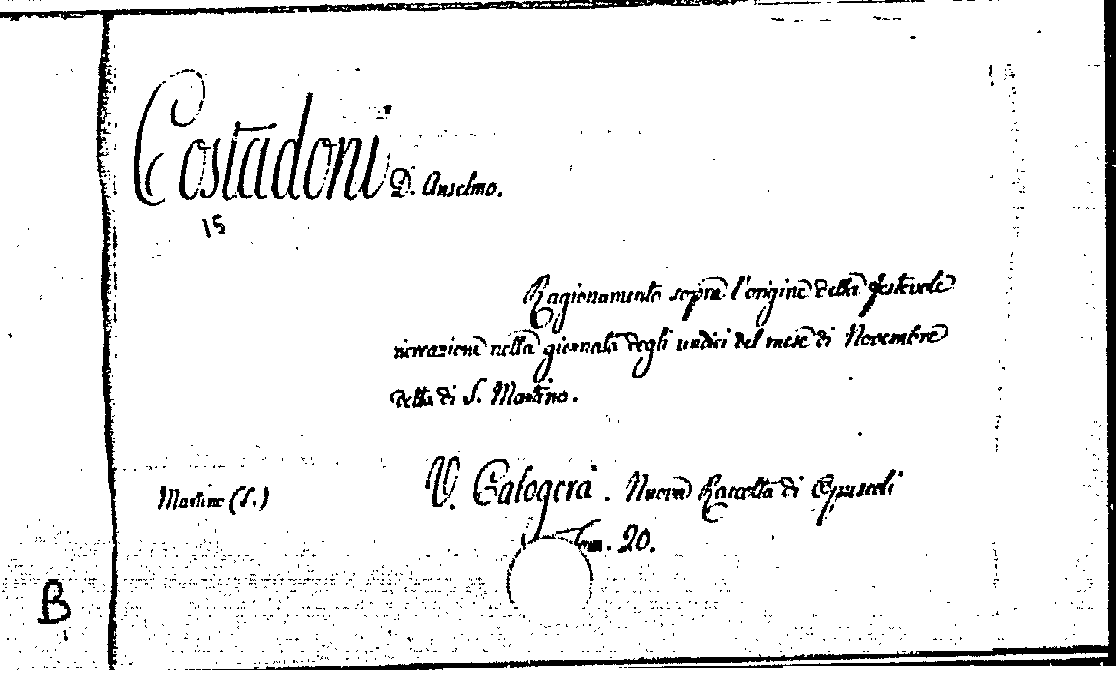 Costadoni D. Anselmo.
15
Ragionamento sopra l'origine della festevole
ricreazione nella giornata degli undici del mese di Novembre
detta di S. Martino.
V. Calogerà. Nuova Raccolta di Opuscoli
Martino (S.)
Tom. 20.
B